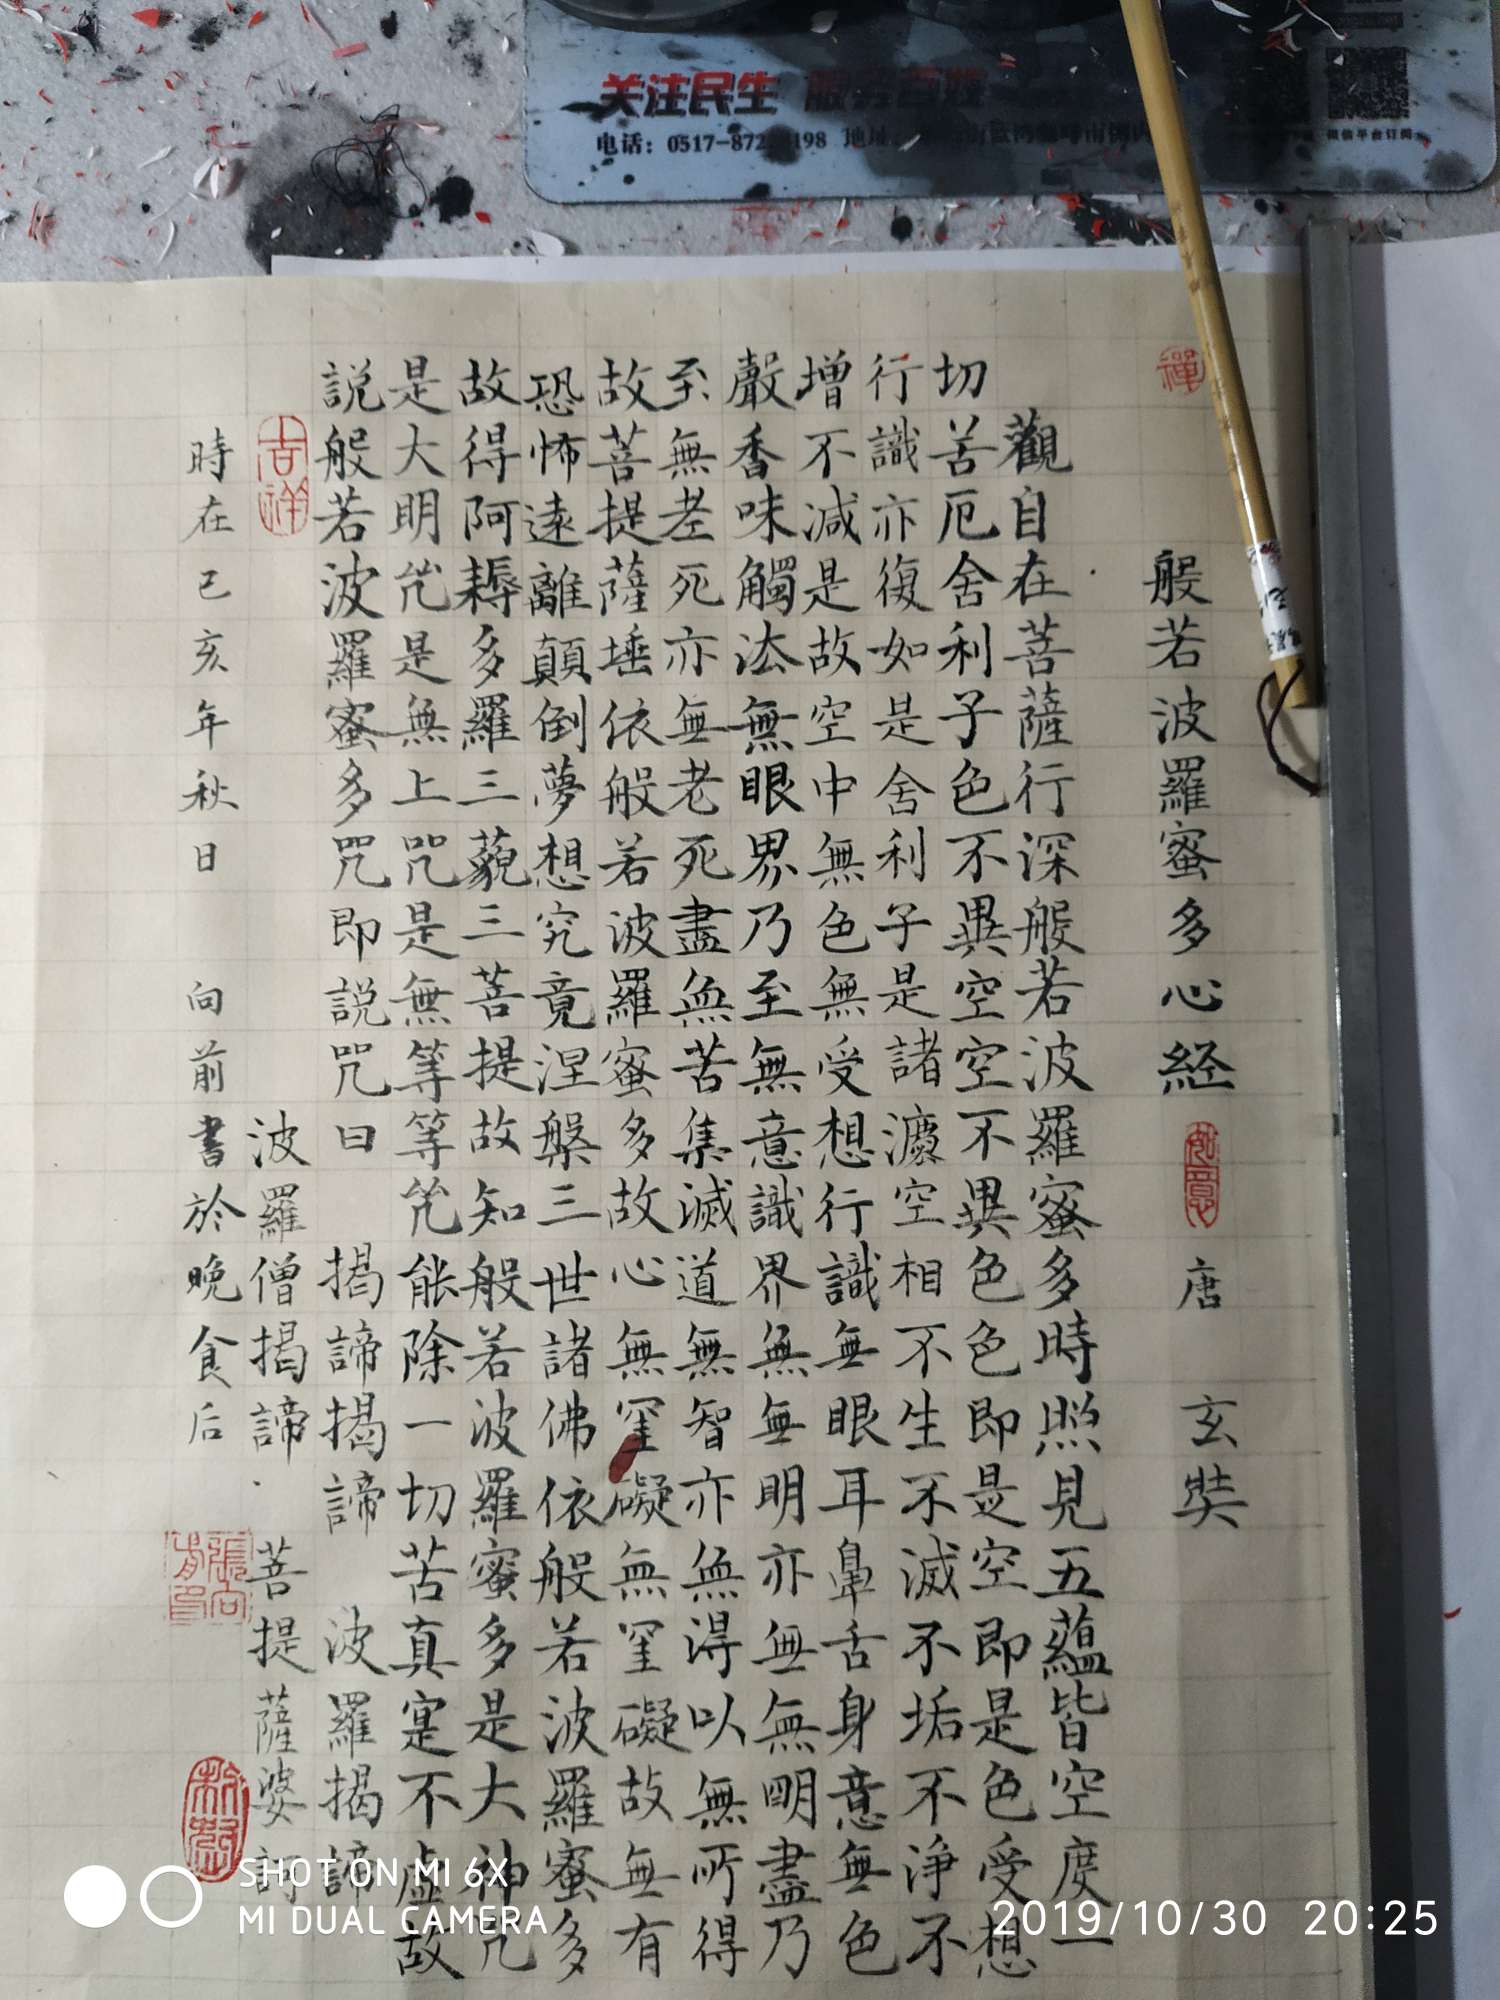 关注民生 服务百姓
电话：0517-872 198 地址
微信平台订阅
禪
般若波羅蜜多心経 如意 唐 玄奘
觀自在菩薩行深般若波羅蜜多時照見五蘊皆空度一
切苦厄舍利子色不異空空不異色色即是空即是色受想
行識亦復如是舍利子是諸灋空相不生不滅不垢不淨不
增不減是故空中無色無受想行識無眼耳鼻舌身意無色
聲香味觸法無眼界乃至無意識界無無明亦無無明盡乃
至無老死亦無老死盡無苦集滅道無智亦無得以無所得
故菩提薩埵依般若波羅蜜多故心無罣礙無罣礙故無有
恐怖遠離顛倒夢想究竟涅槃三世諸佛依般若波羅蜜多
故得阿耨多羅三藐三菩提故知般若波羅蜜多是大神咒
是大明咒是無上咒是無等等咒能除一切苦真寔不虛故
説般若波羅蜜多咒即説咒曰 揭諦揭諦 波羅揭諦
吉祥
波羅僧揭諦 菩提薩婆訶
時在己亥年秋日 向前書於晚食后
張向前印
SHOT ON MI 6X
MI DUAL CAMERA
2019/10/30 20:25